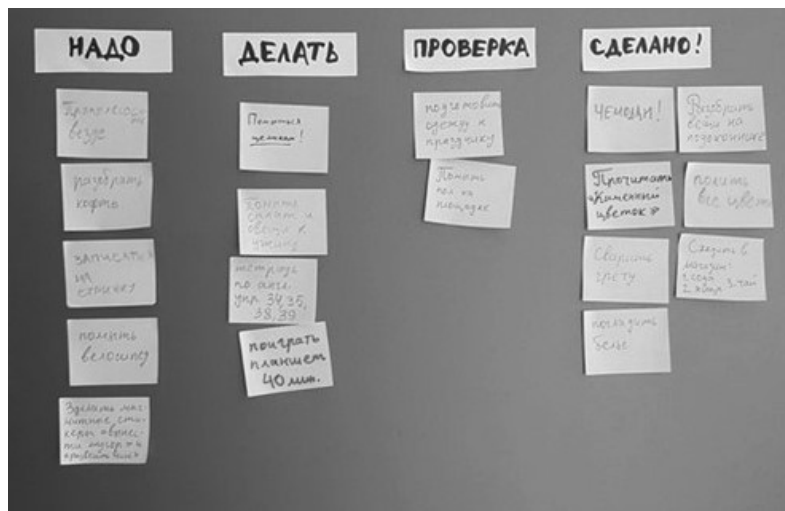 НАДО
везде
разобрать
кофты
записаться
на
стрижку
помыть
велосипед
Зделать маг-
нитные сти-
керы «вынес-
ти мусор» и
ДЕЛАТЬ
Помыться
целиком!
Помыть
салат и
овощи к
ужину
тетрадь
по англ.
упр. 34, 35,
38, 39
поиграть
планшет
40 мин.
ПРОВЕРКА
подготовить
одежду к
празднику
Помыть
пол на
площадке
СДЕЛАНО!
ЧЕМОДАН!
Разобрать
вещи на
подоконнике
Прочитать
«Каменный
цветок»
полить
все цветы
Сварить
гречу
Сходить в
магазин:
погладить
белье